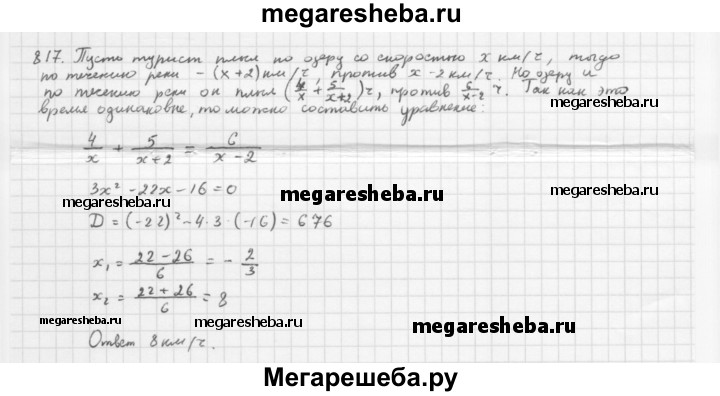 megaresheba.ru
817. Пусть турист плыл по озеру со скоростью x км/ч, тогда
по течению реки – (x+2) км/ч, против x-2 км/ч. На озеру и
по течению реки он плыл (4/x + 5/(x+2)) ч, против 6/(x-2) ч. Так как это
время одинаковые, то можно составить уравнение:
4/x + 5/(x+2) = 6/(x-2)
3x² - 22x - 16 = 0
megaresheba.ru
megaresheba.ru
D = (-22)² - 4·3·(-16) = 676
x₁ = (22-26)/6 = -2/3
x₂ = (22+26)/6 = 8
megaresheba.ru
megaresheba.ru
megaresheba.ru
Ответ 8 км/ч.
Мегарешеба.ру